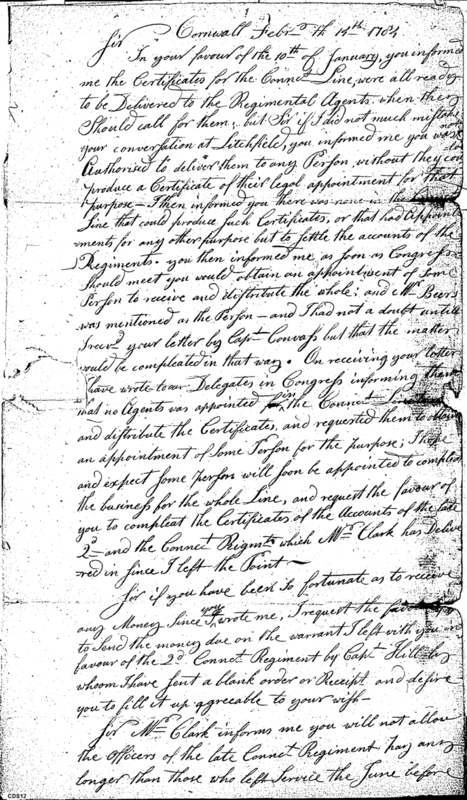 Cornwall Febry. th 14th 1784
Sir
In your favour of the 10th of January, you informed
me the Certificates for the Connect. Line, were all ready
to be Delivered to the Regimental Agents when they
Should call for them; but Sir if I did not much mistake
your conversation at Litchfield, you informed me you was not
Authorised to deliver them to any Person, without they could
produce a Certificate of their legal appointment for that
purpose — I then informed you there was none in the
Line that could produce such Certificates, or that had Appoint
ments for any other purpose but to settle the accounts of the
Regiments. you then informed me as soon as Congress
should meet you would obtain an appointment of Some
Person to receive and distribute the whole; and Mr. Beers
was mentioned as the Person — and I had not a doubt untill
I recvd. your letter by Capt. Convass but that the matter
would be compleated in that way. On receiving your letter
I have wrote to our Delegates in Congress informing them
that no Agents was appointed in the Connect.
and distribute the Certificates, and requested them to obtain
an appointment of Some Person for the purpose; I hope
and expect some person will soon be appointed to compleat
the business for the whole Line, and request the favour of
you to compleat the Certificates of the Accounts of the late
2d — and the Connect. Rigmts. which Mr. Clark has Delive
red in since I left the Point —
Sir if you have been so fortunate as to receive
any Money Since you wrote me, I request the favour
to Send the money due on the warrant I left with you in
favour of the 2d. Connect. Regiment by Capt. Hill by
whom I have sent a blank order or Receipt and desire
you to fill it up agreeable to your wish —
Sir Mr. Clark informs me you will not allow
the Officers of the late Connect. Regiment pay any
longer than those who left Service the June before
CDS12